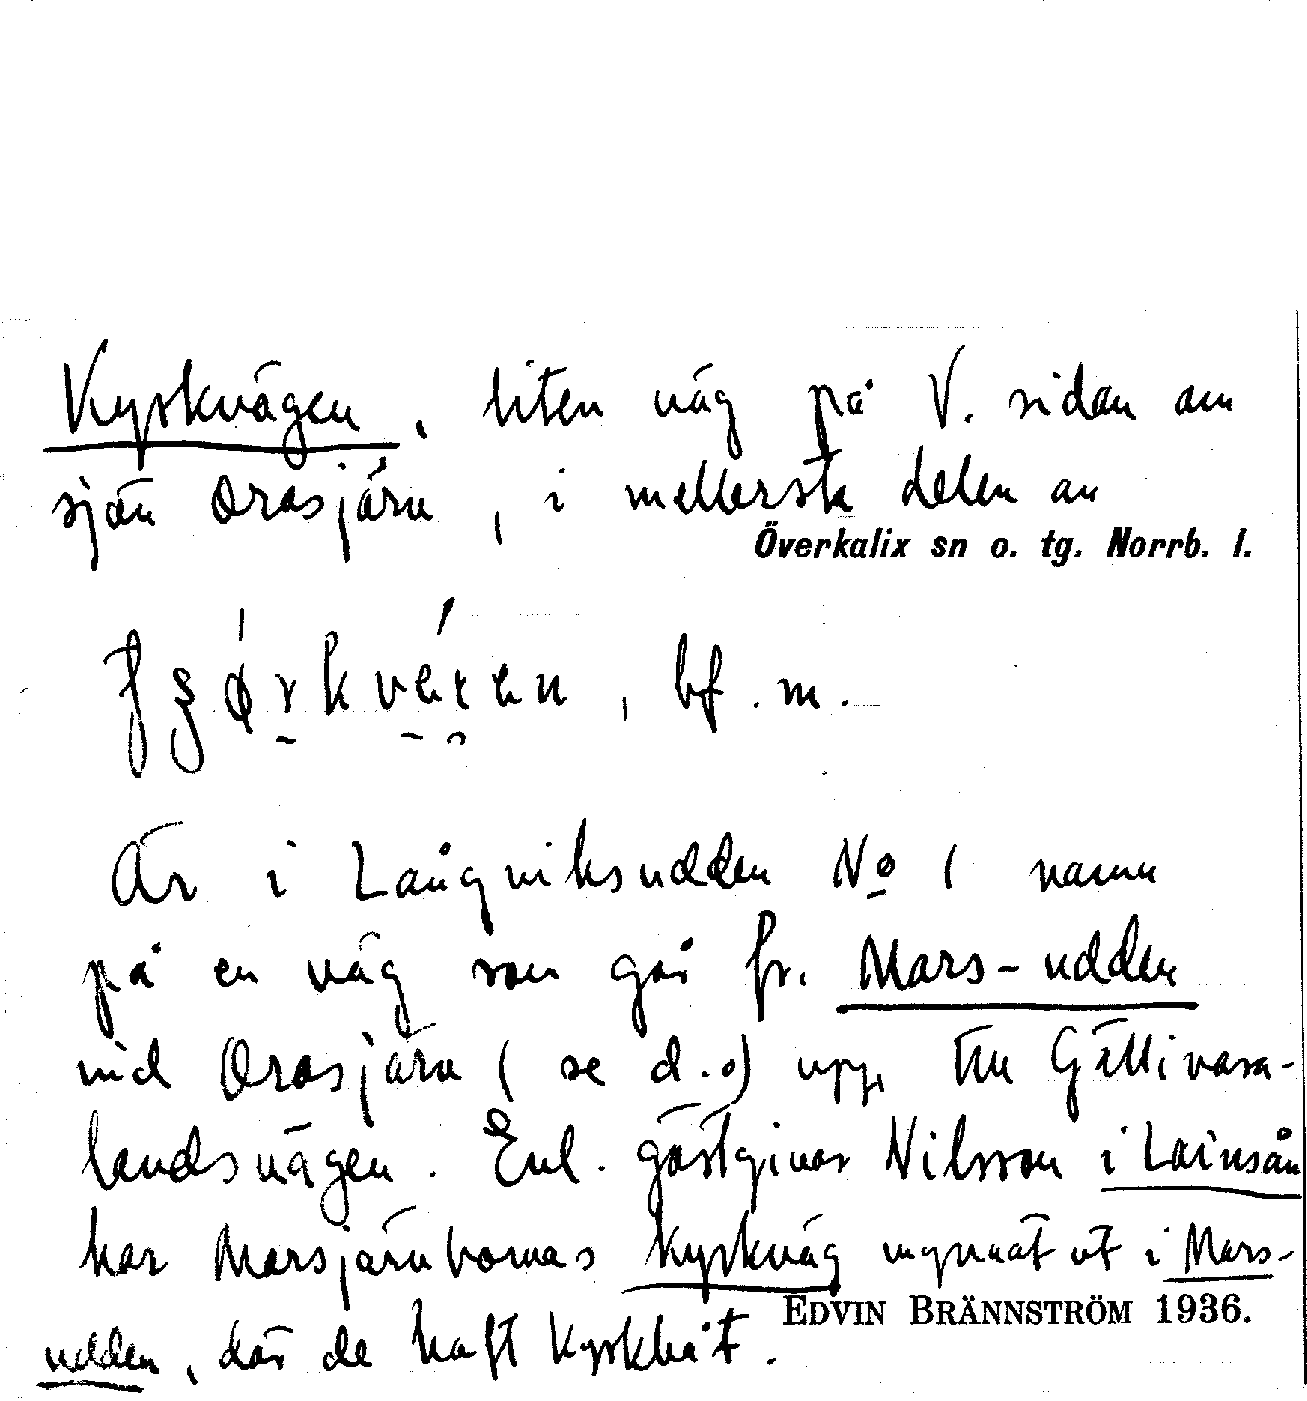 Kyrkvägen, liten väg på V. sidan av
sjön Orasjärv, i mellersta delen av
Överkalix sn o. tg. Norrb. l.
bf. m.
Är i Långviksudden No 1 namn
på en väg som går fr. Mars-udden
vid Orasjärv (se d.o) upp till Gällivara-
landsvägen. Enl. gästgivar Nilsson i Lainsån
har Marsjärvbornas kyrkväg mynnat ut i Mars-
EDVIN BRÄNNSTRÖM 1936.
udden, där de haft kyrkbåt.